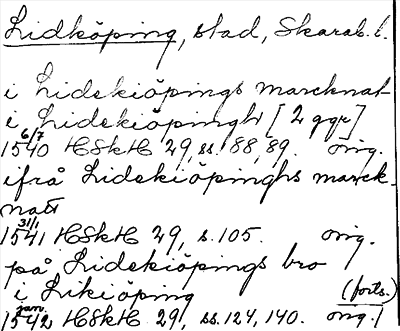 Lidköping, stad, Skarab. l.
i Lidekiöpings marcknat
i Lidekiöpingh [2 ggr]
1540 6/7 HSkH 29, ss. 88, 89. orig.
ifrå Lidekiöpinghs marck-
natt
1541 31/1 HSkH 29, s. 105. orig.
på Lidekiöpings bro
i Likiöping (forts.)
1542 jan. HSkH 29, ss. 124, 140. orig.